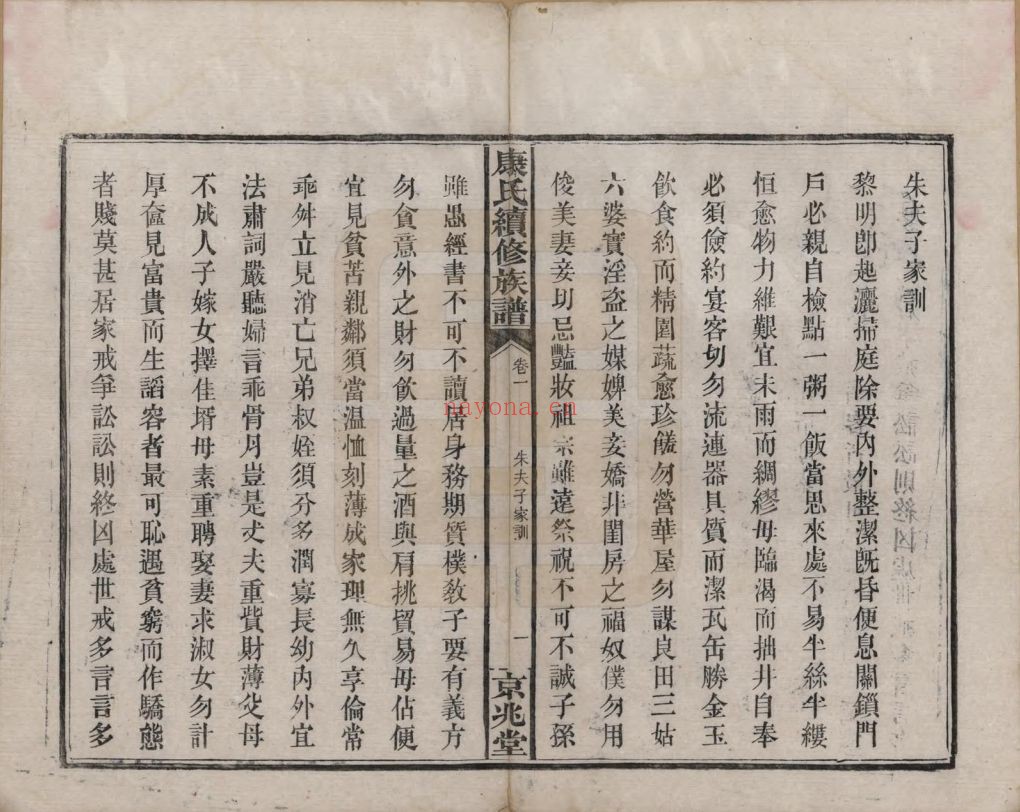 朱夫子家訓
黎明卽起灑掃庭除要內外整潔旣昏便息關鎖門
戶必親自檢點一粥一飯當思來處不易半絲半縷
恒愈物力維艱宜未雨而綢繆毋臨渴而拙井自奉
必須儉約宴客切勿流連器具質而潔瓦缶勝金玉
飲食約而精園蔬愈珍饈勿營華屋勿謀良田三姑
六婆實淫盜之媒婢美妾嬌非閨房之福奴僕勿用
俊美妻妾切忌豔妝祖宗雖遠祭祝不可不誠子孫
康氏續修族譜
卷一
朱夫子家訓
一
京兆堂
雖愚經書不可不讀居身務期質樸敎子要有義方
勿貪意外之財勿飲過量之酒與肩挑貿易毋佔便
宜見貧苦親鄰須當溫恤刻薄成家理無久享倫常
乖舛立見消亡兄弟叔姪須分多潤寡長幼內外宜
法肅詞嚴聽婦言乖骨月豈是丈夫重貲財薄父母
不成人子嫁女擇佳壻毋素重聘娶妻求淑女勿計
厚奩見富貴而生謟容者最可恥遇貧窮而作驕態
者賤莫甚居家戒爭訟訟則終凶處世戒多言言多
nayona.cn